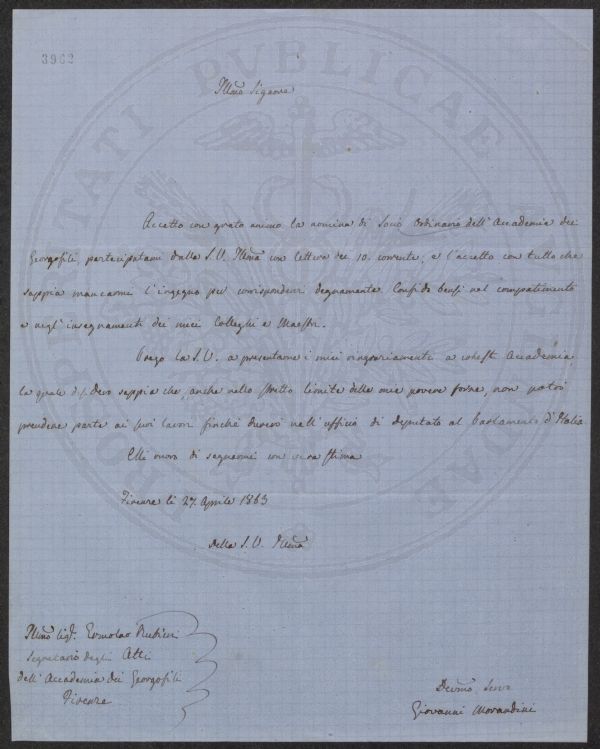 3962
Illmo Signore
Accetto con grato animo la nomina di Socio Ordinario dell'Accademia dei
Georgofili, partecipatami dalla S. V. Illma con lettera dei 10. corrente, e l'accetto con tutto che
sappia mancarmi l'ingegno per corrispondervi degnamente. Confido bensì nel compatimento
e negl'insegnamenti dei miei Colleghi e Maestri.
Prego la S. V. a presentare i miei ringraziamenti a cotesta Accademia,
la quale desidero sappia che, anche nello stretto limite delle mie povere forze, non potrò
prendere parte ai suoi lavori finchè durerò nell'ufficio di deputato al Parlamento d'Italia.
Ho l'onore di segnarmi con vera stima
Firenze li 27. Aprile 1863
della S. V. Illma
Illmo Sigr. Ermolao Rubieri
Segretario degli Atti
dell'Accademia dei Georgofili
Firenze
Devmo Serv
Giovanni Morandini